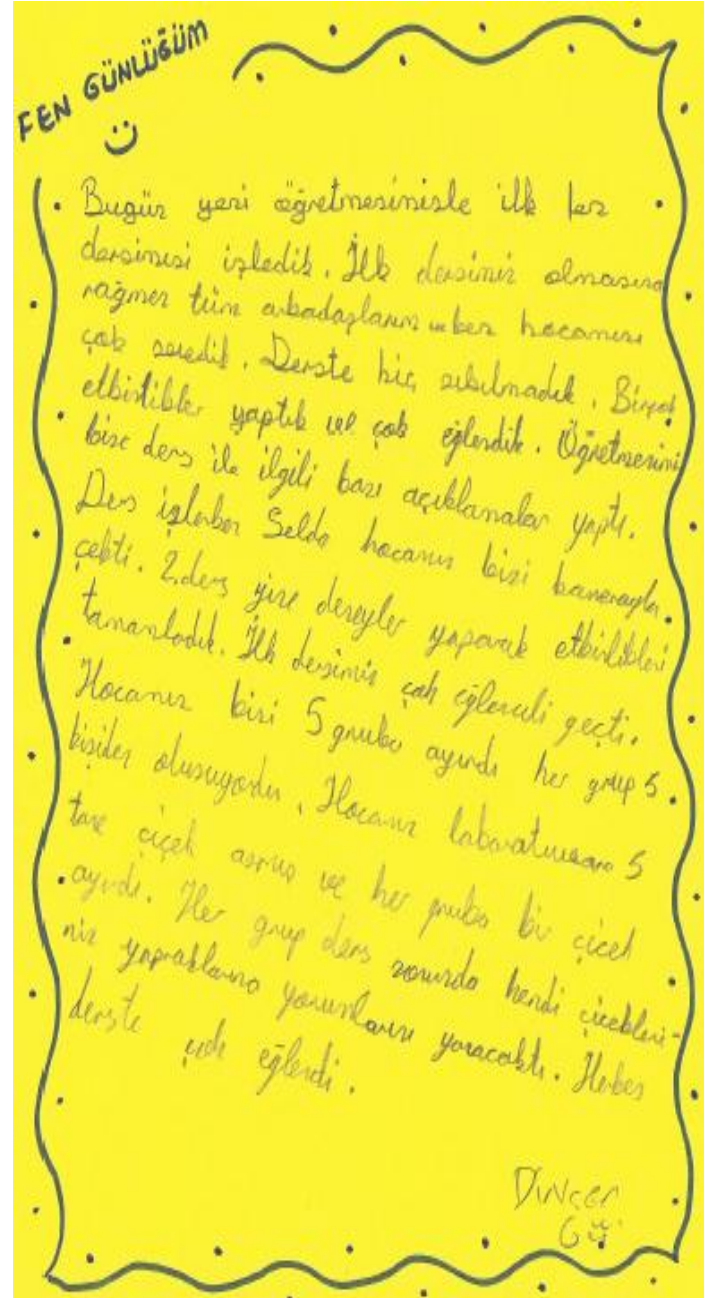 FEN GÜNLÜĞÜM
Bugün yeni öğretmenimizle ilk kez
dersimizi işledik. İlk dersimiz olmasına
rağmen tüm arkadaşlarım ve ben hocamızı
çok sevdik. Derste hiç sıkılmadık. Birçok
etkinlikler yaptık ve çok eğlendik. Öğretmenimi
bize ders ile ilgili bazı açıklamalar yaptı.
Ders işlerken Selda hocamız bizi kamerayla
çekti. 2.ders yine deneyler yaparak etkinlikleri
tamamladık. İlk dersimiz çok eğlenceli geçti.
Hocamız bizi 5 gruba ayırdı her grup 5
kişiden oluşuyordu. Hocamız laboratuvara 5
tane çiçek asmış ve her gruba bir çiçek
ayırdı. Her grup ders sonunda kendi çiçekleri-
nin yapraklarına yorumlarını yazacaktı. Herkes
derste çok eğlendi.
Dinçer